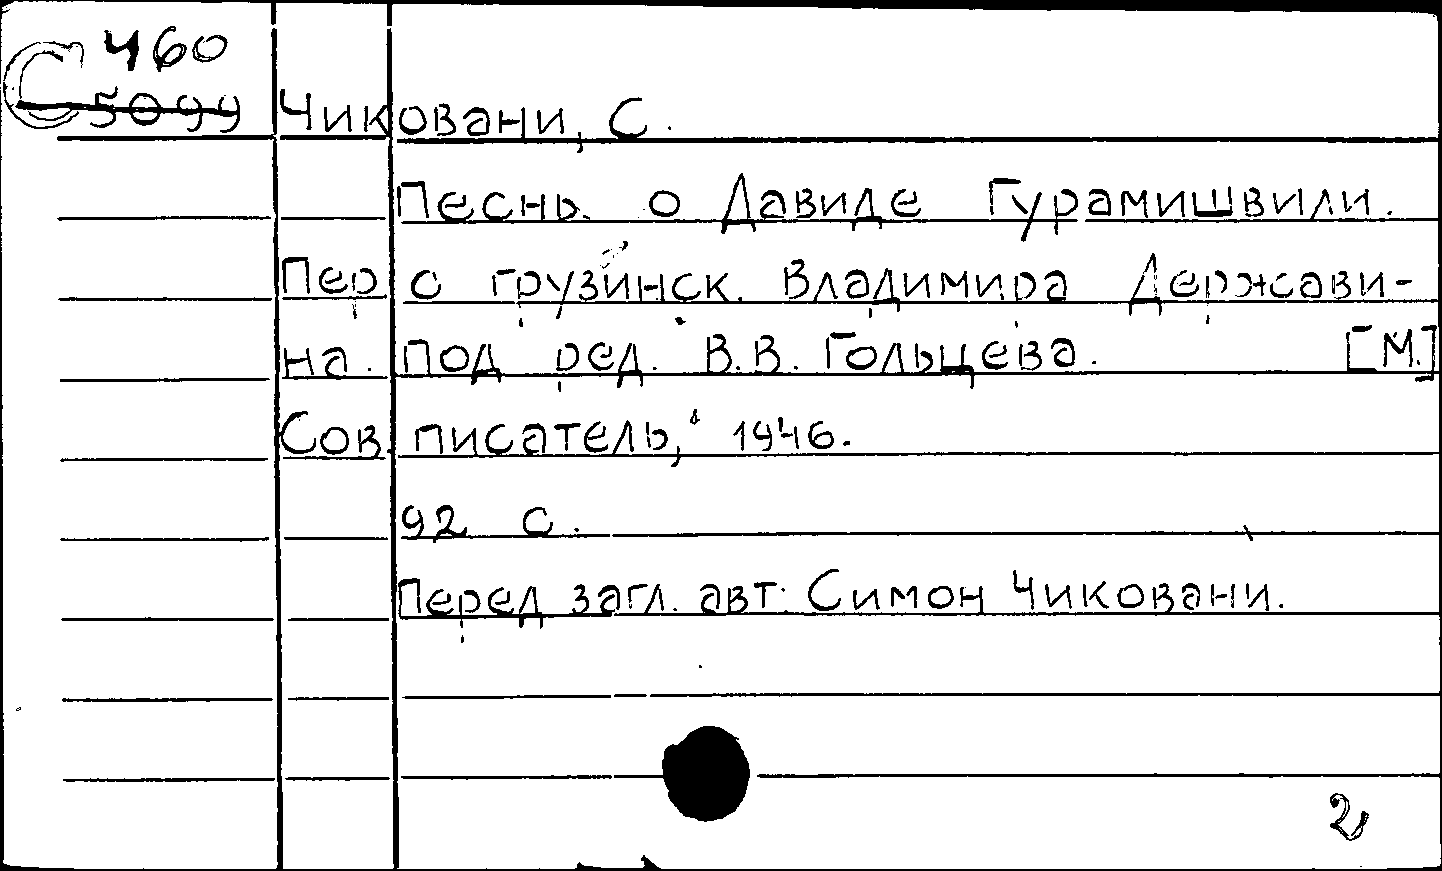 С 460
5099 Чиковани, С.
Песнь о Давиде Гурамишвили.
Пер с грузинск. Владимира Держави-
на. Под ред. В.В. Гольцева. [М.]
Сов. писатель, 1946.
92 с.
Перед загл. авт: Симон Чиковани.
2